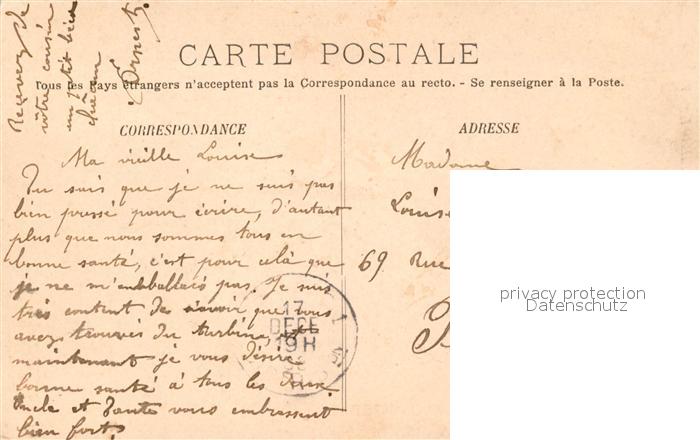 Recevez de
vôtre cousin
un petit bécot
Ernest
CARTE POSTALE
Tous les pays étrangers n'acceptent pas la Correspondance au recto. - Se renseigner à la Poste.
CORRESPONDANCE
Ma vieille Louise
Tu sais que je ne suis pas
bien pressé pour écrire, d'autant
plus que nous sommes tous en
bonne santé, c'est pour celà que
je ne m'emballais pas. Je suis
très content de savoir que vous
avez trouver du turbin
maintenant je vous désire
bonne santé à tous les deux.
Oncle et Tante vous embrassent
bien fort.
17
DECE
19 H
ADRESSE
Madame
Louise
69 Rue
privacy protection
Datenschutz